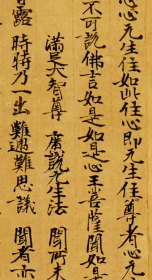 心心无生住如此住心即无生住尊者心无
不可说佛言如是如是心王菩薩闻如是
满足大智尊 廣説无生法 聞所未
露 時特乃一出 難遇難思議 聞者亦